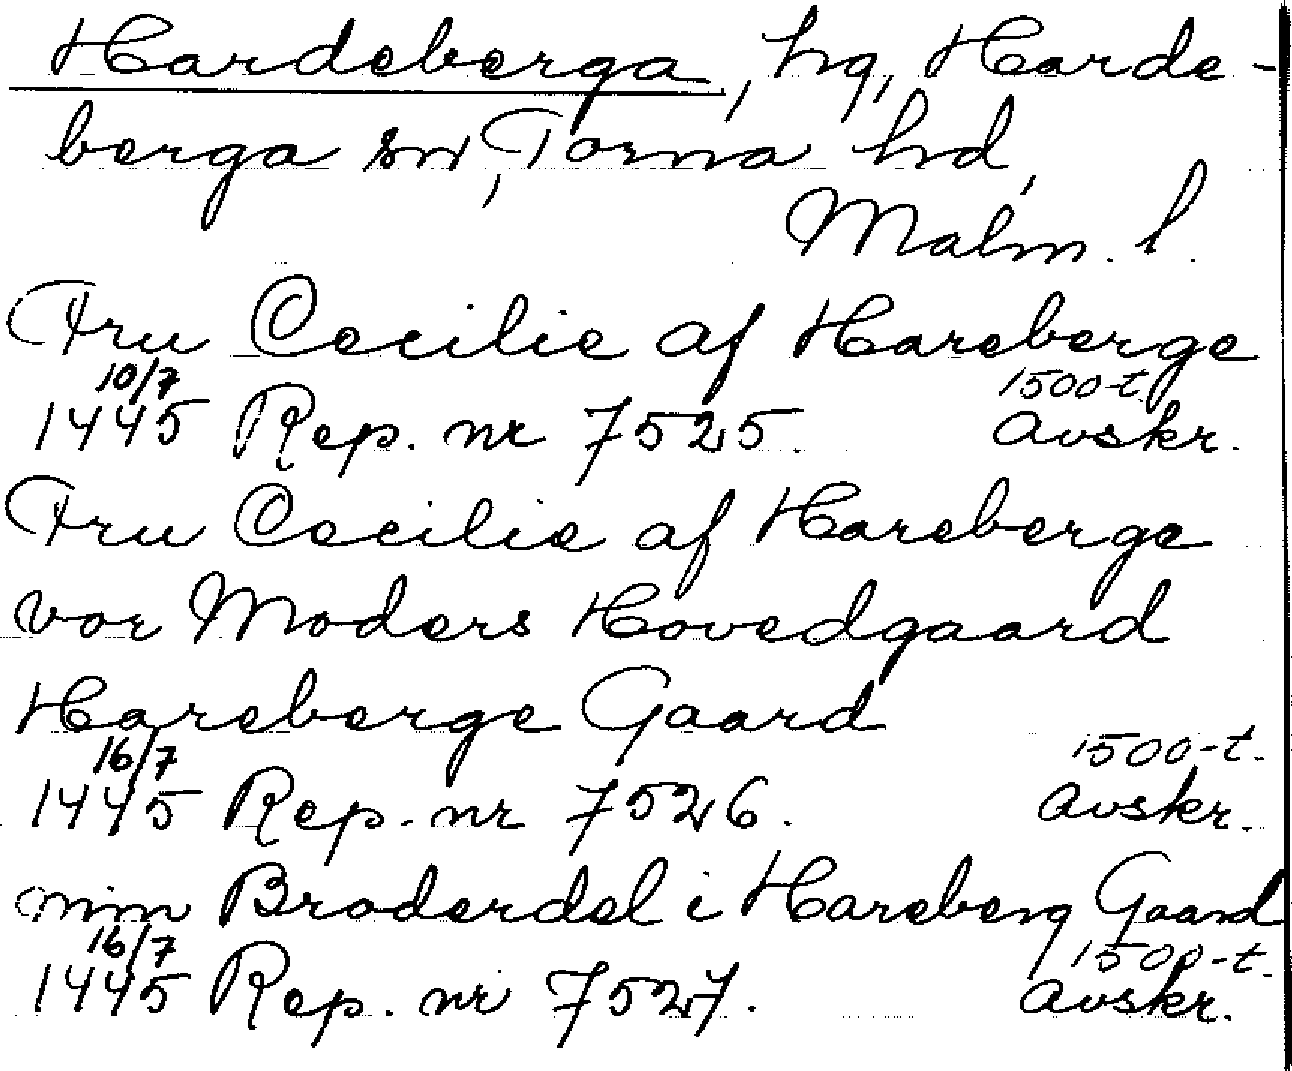 Hardeberga, hg, Harde-
berga sn, Torna hd,
Malm. l.
Fru Cecilie af Hareberge
10/7 1500-t.
1445 Rep. nr 7525. Avskr.
Fru Cecilie af Hareberge
vor Moders Hovedgaard
Hareberge Gaard
16/7 1500-t.
1445 Rep. nr 7526. Avskr.
min Broderdel i Hareberg Gaard
16/7 1500-t.
1445 Rep. nr 7527. Avskr.